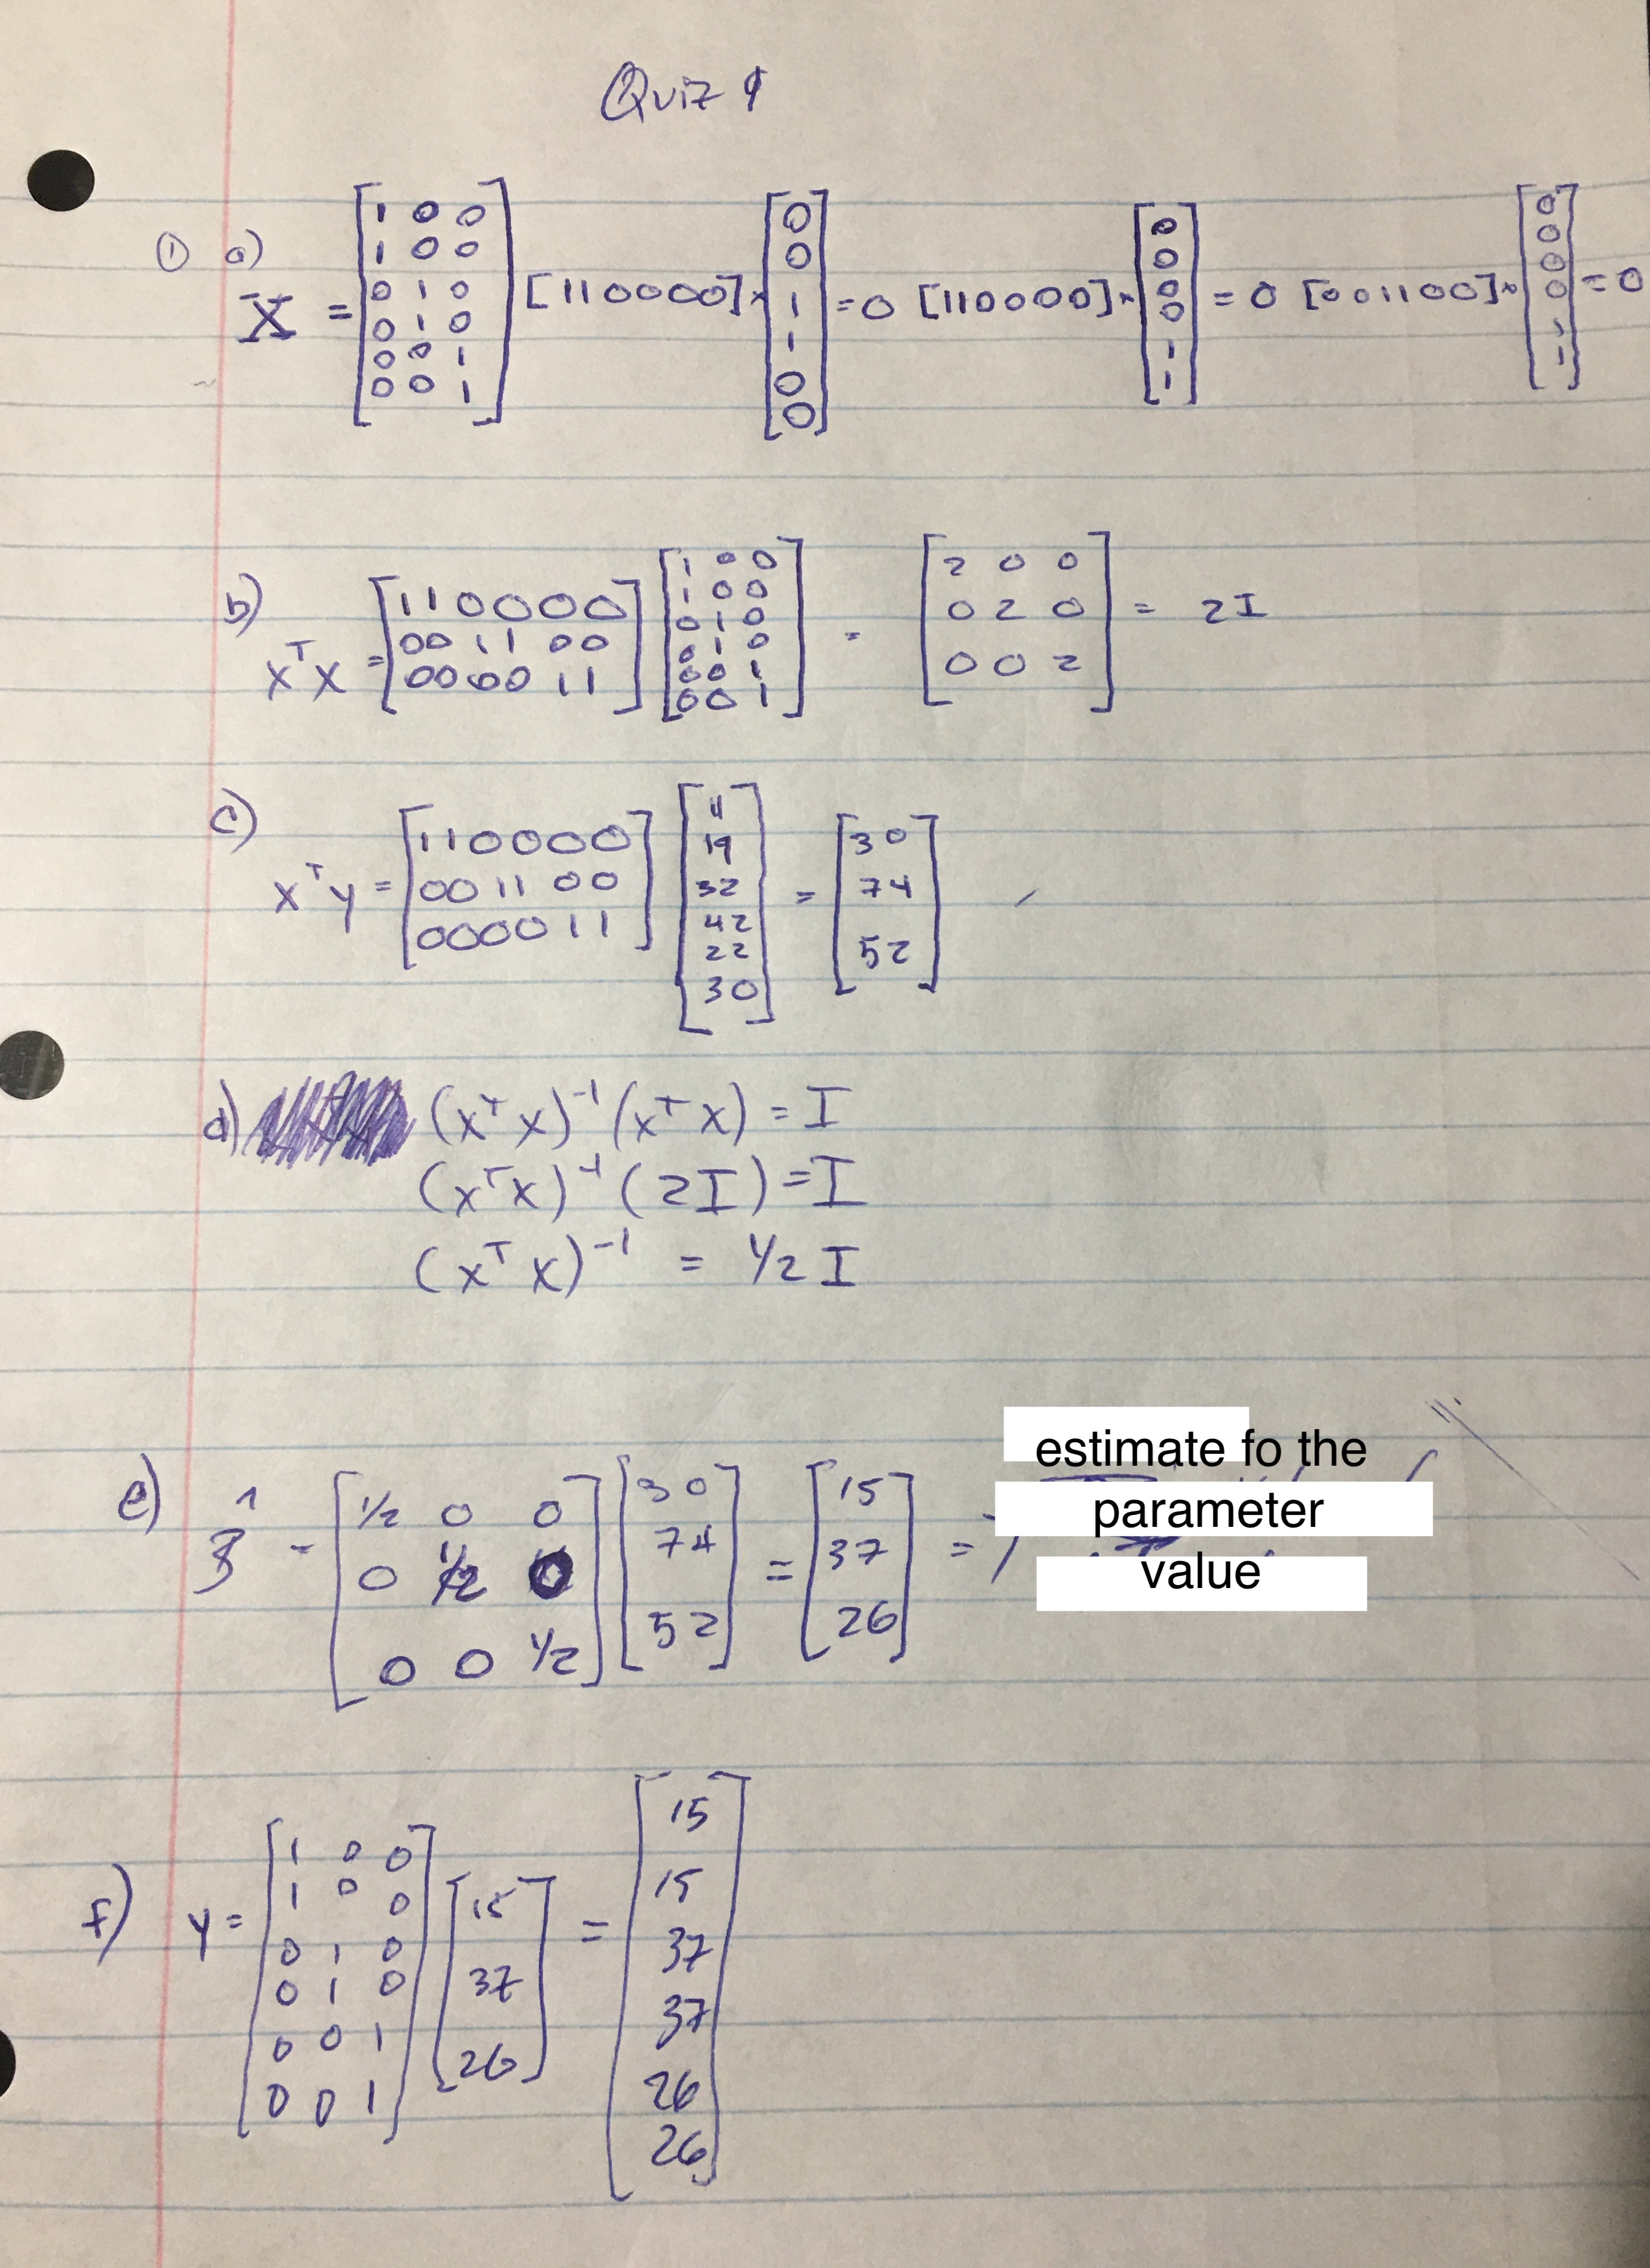 Quiz 9
① a)
X = [1 0 0
1 0 0
0 1 0
0 1 0
0 0 1
0 0 1] [110000] × [0
0
1
1
0
0] = 0 [110000] × [0
0
0
0
1
1] = 0 [001100] × [0
0
0
0
1
1] = 0
b)
XᵀX = [110000
001100
000011] [1 0 0
1 0 0
0 1 0
0 1 0
0 0 1
0 0 1] = [2 0 0
0 2 0
0 0 2] = 2I
c)
Xᵀy = [110000
001100
000011] [11
19
32
42
22
30] = [30
74
52]
d) (XᵀX)⁻¹(XᵀX) = I
(XᵀX)⁻¹(2I) = I
(XᵀX)⁻¹ = 1/2 I
e) = [1/2 0 0
0 1/2 0
0 0 1/2] [30
74
52] = [15
37
26] =
estimate fo the
parameter
value
f) y = [1 0 0
1 0 0
0 1 0
0 1 0
0 0 1
0 0 1] [15
37
26] = [15
15
37
37
26
26]